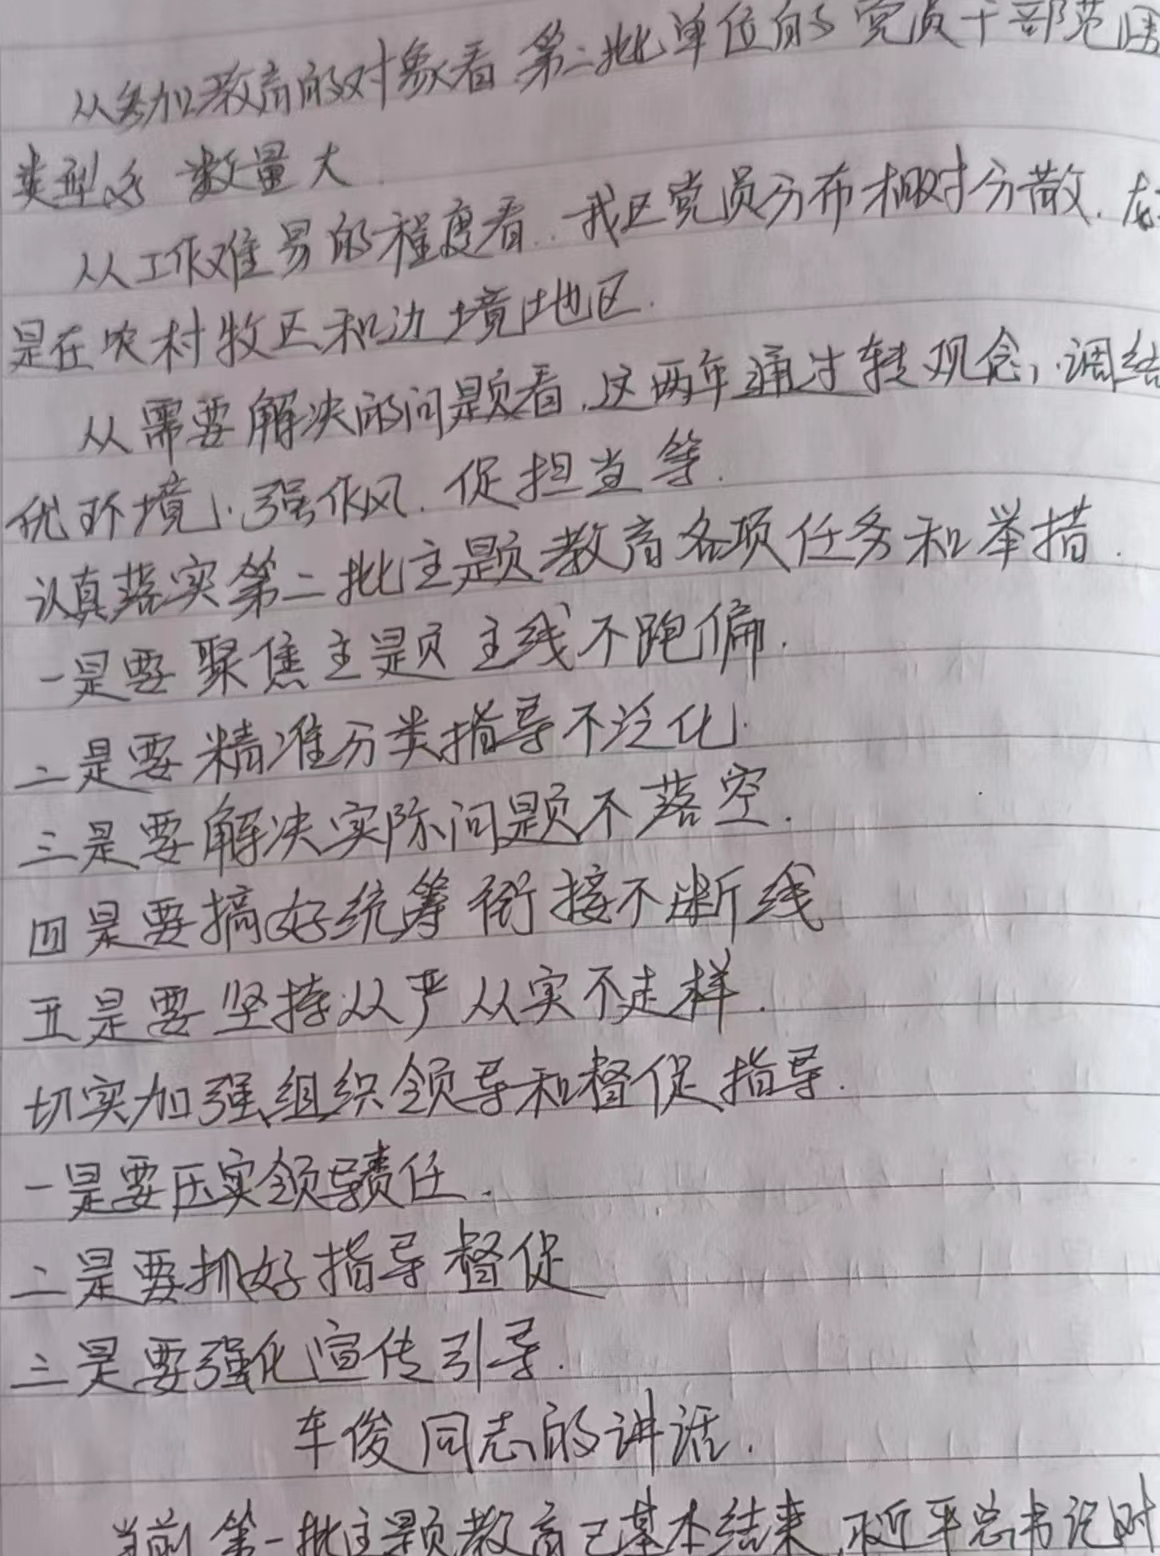 从参加教育的对象看 第二批单位的党员干部范围
类型多 数量大
从工作难易的程度看..我区党员分布相对分散.
是在农村牧区和边境地区.
从需要解决的问题看.这两年通过转观念,调结
优环境,强作风.促担当等.
认真落实第二批主题教育各项任务和举措.
一是要聚焦主题主线不跑偏.
二是要精准分类指导不泛化.
三是要解决实际问题不落空.
四是要搞好统筹衔接不断线
五是要坚持从严从实不走样.
切实加强组织领导和督促指导.
一是要压实领导责任.
二是要抓好指导督促
三是要强化宣传引导.
车俊同志的讲话.
当前第一批主题教育已基本结束,近平总书记对